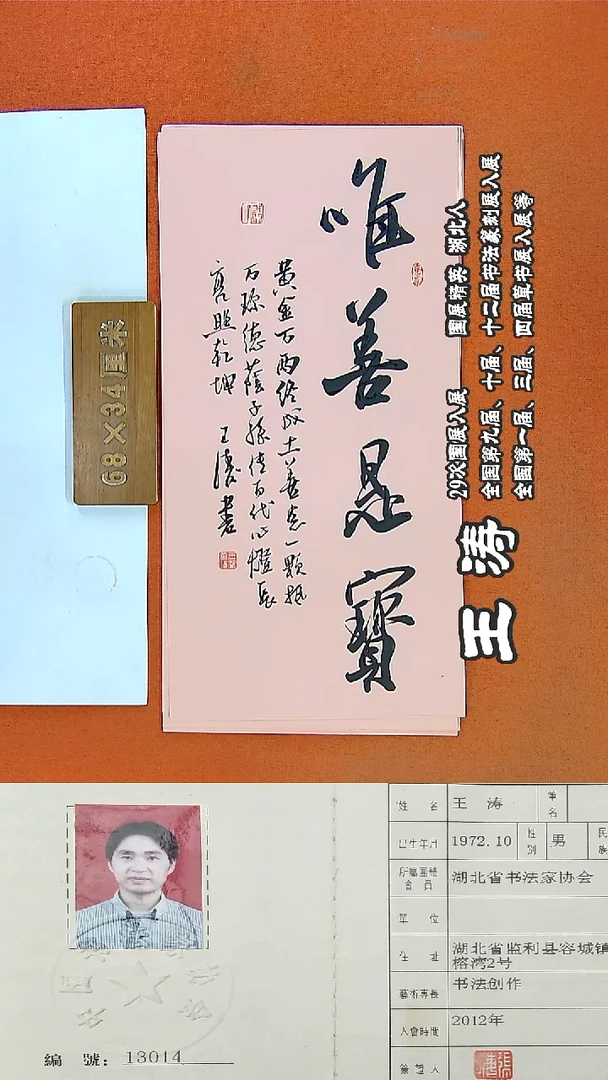 唯善是寶
黄金万两终成土善念一顆抵
万珍德蔭子孫傳百代心燈長
亮照乾坤 王濤書
68×34厘米
王涛
29次国展入展 国展精英 湖北人
全国第九届、十届、十二届书法篆刻展入展
全国第一届、三届、四届草书展入展等
編 號：13014
姓 名 王 涛 筆名
出生年月 1972.10 性別 男 民族
所屬團體會員 湖北省书法家协会
單 位
住 址 湖北省监利县容城镇
榕湾2号
藝術專長 书法创作
入會時間 2012年
簽證人